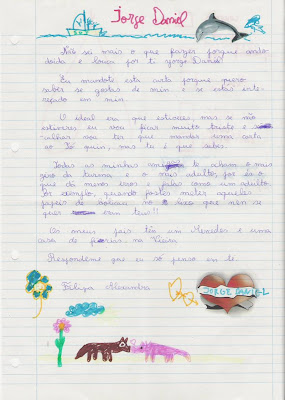 Jorge Daniel
Não sei mais o que fazer porque ando
doida e louca por ti Jorge Daniel
Eu mandote esta carta porque quero
saber se gostas de mim e se estas inte-
reçado em mim.
O ideal era que estiveces, mas se não
estiveres eu vou ficar muito triste e
calhar vou ter que mandar uma carta
ao Tó quim, mas tu é que sabes.
Todas as minhas te achom o mais
giro da turma e o mais adulto, por so o
que dá menos erros e falas como um adulto.
Por exemplo, quando fostes meter aqueles
papeis de no lixo que nem se
quer eram teus!!
Os oneus pais têm um Mercedes e uma
casa de ferias na
Respondeme que eu só penso em ti.
Filipa Alexandra
JORGE DANIEL